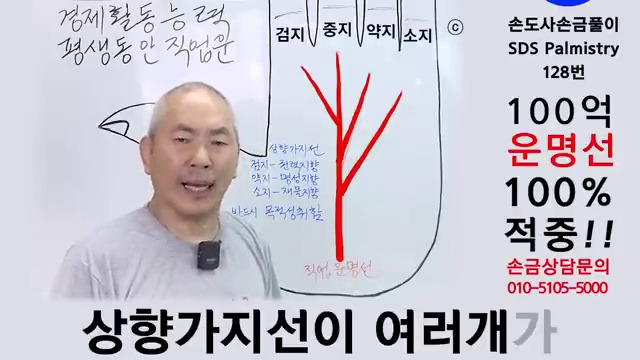 경제활동능력
평생동안 직업운
검지
중지
약지
소지
ⓒ
상향가지선
검지-권력지향
약지-명성지향
소지-재물지향
반드시 목적성취함
직업운명선
손도사손금풀이
SDS Palmistry
128번
100억
운명선
100%
적중!!
손금상담문의
010-5105-5000
상향가지선이 여러개가